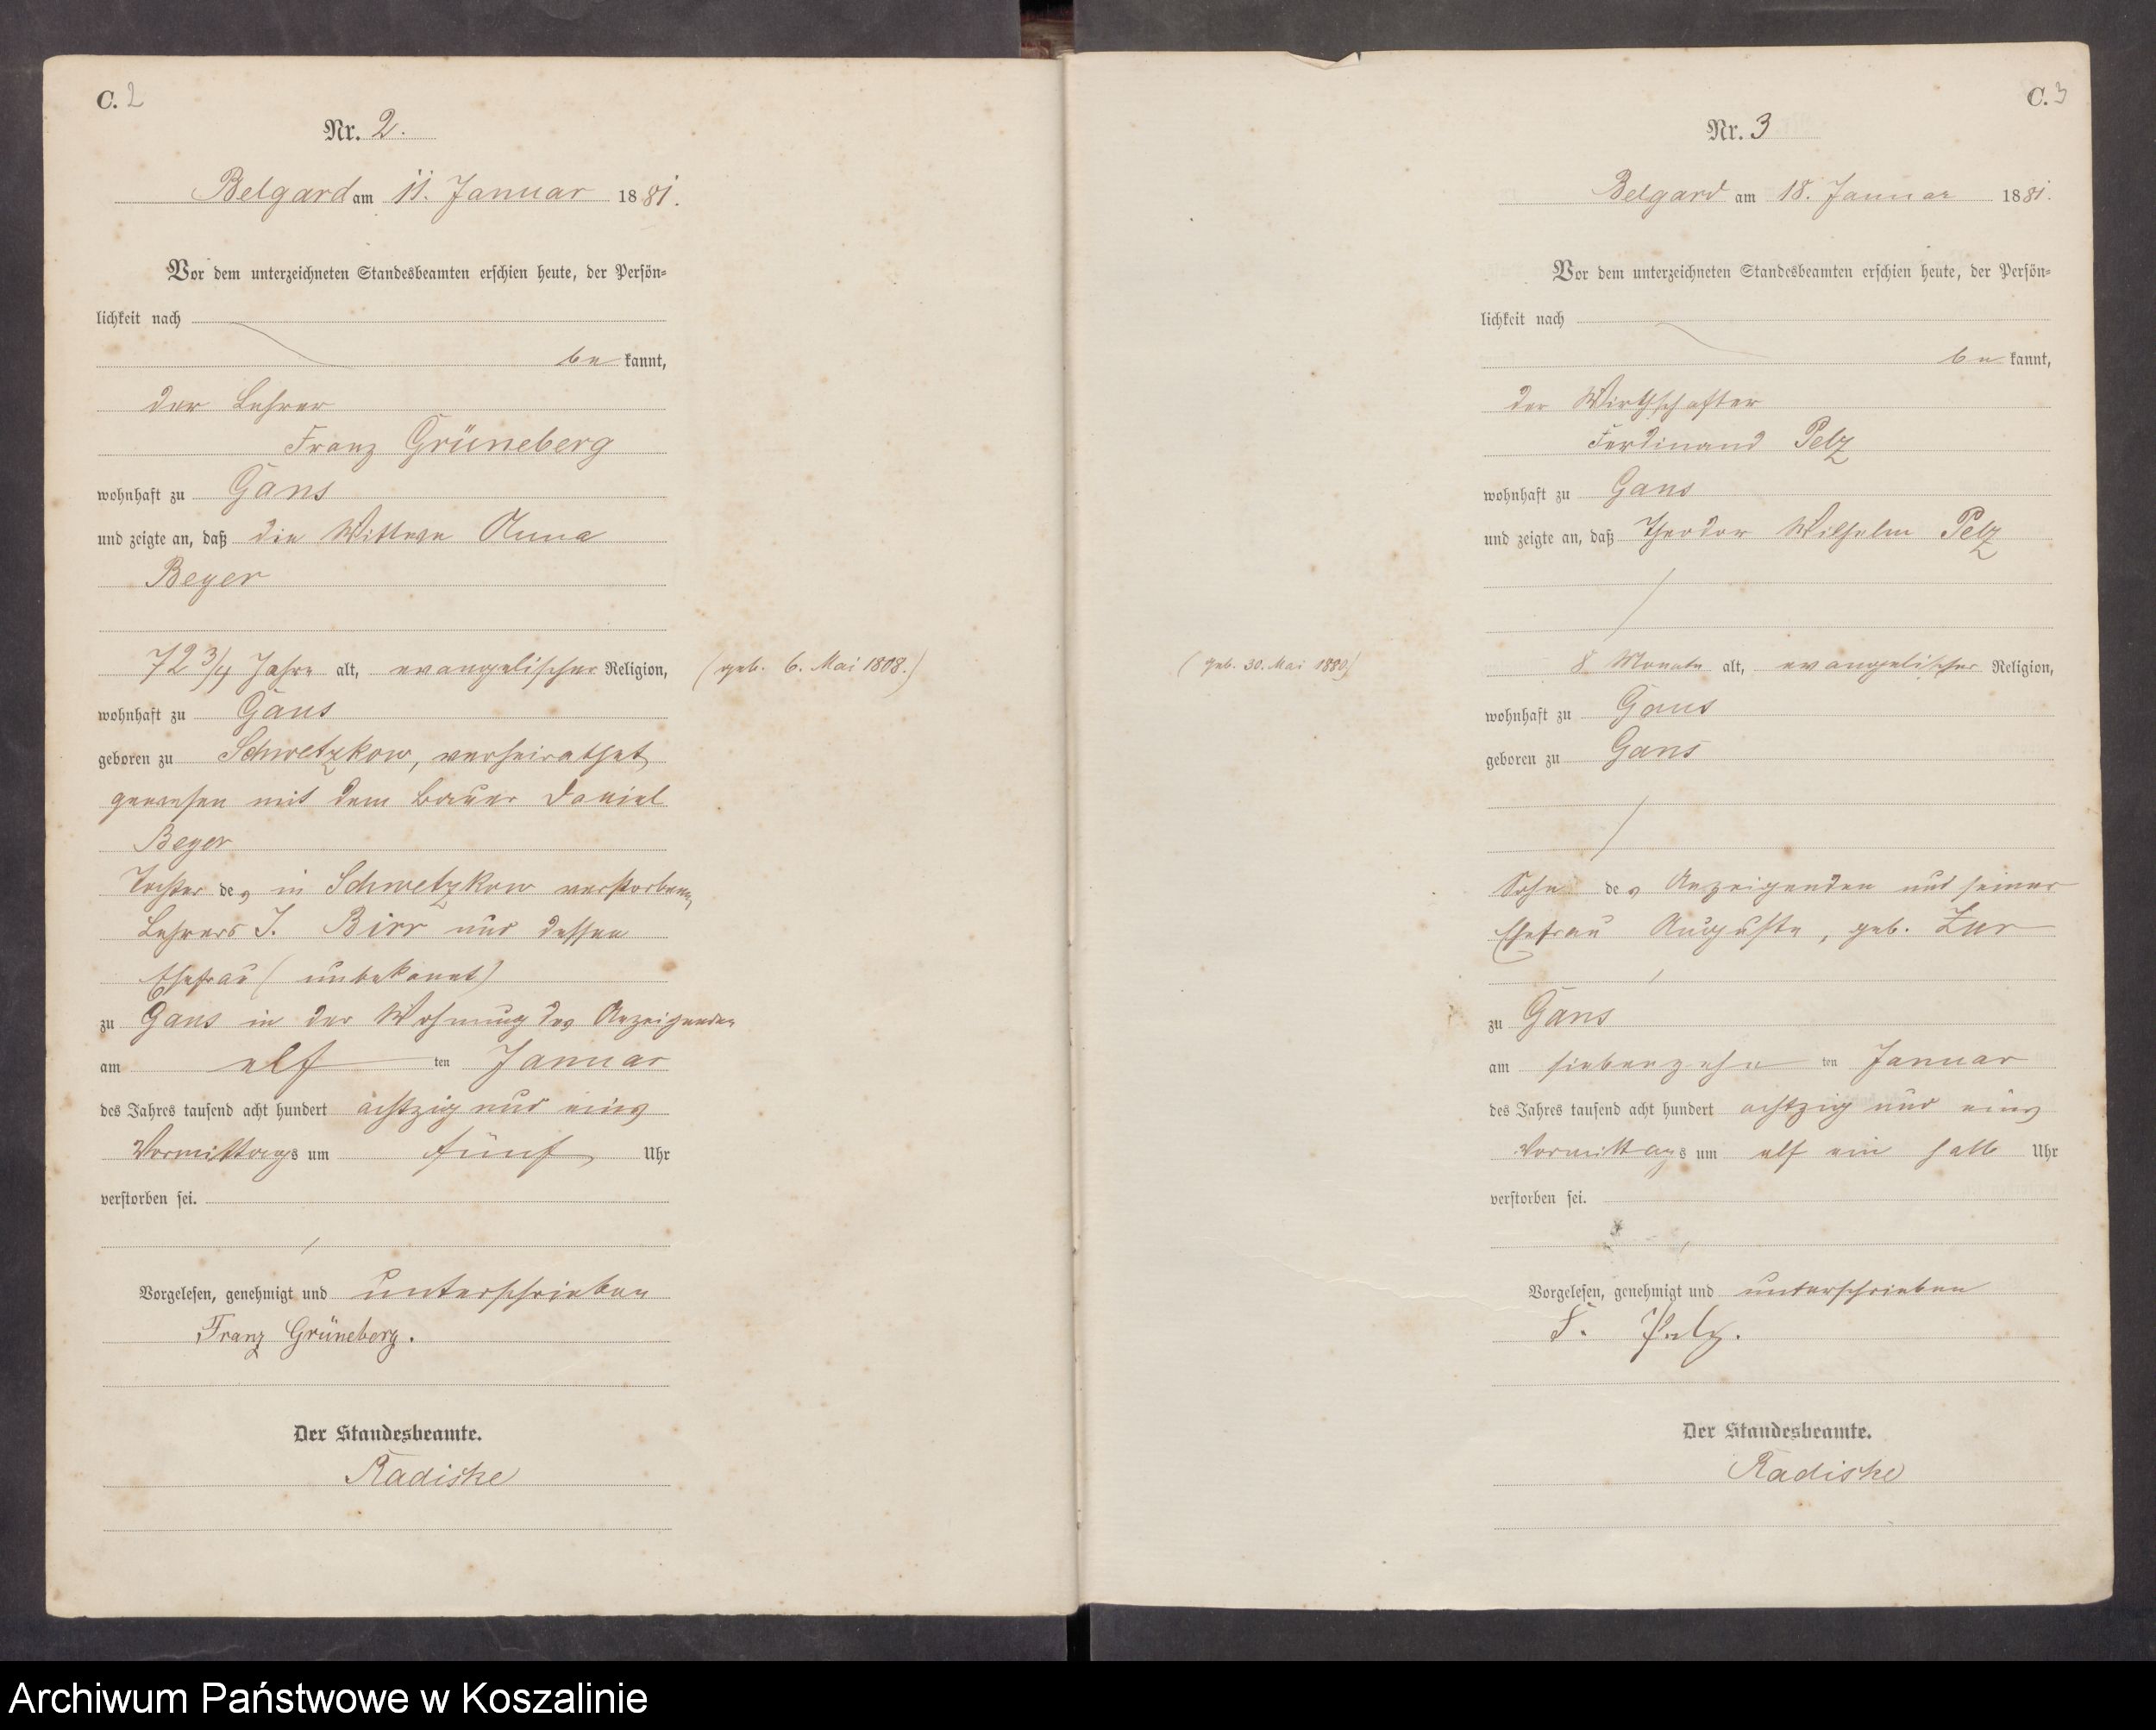 C. 2
Nr. 2.
Belgard am 11. Januar 1881.
Vor dem unterzeichneten Standesbeamten erschien heute, der Persön-
lichkeit nach
be kannt,
der Lehrer
Franz Grüneberg
wohnhaft zu Gans
und zeigte an, daß die Wittwe Anna
Beyer
72 3/4 Jahre alt, evangelischer Religion, (geb. 6. Mai 1808.)
wohnhaft zu Gans
geboren zu Schwetzkow, verheirathet
gewesen mit dem Bauer Daniel
Beyer
Tochter des in Schwetzkow verstorbenen
Lehrers J. Birr und dessen
Ehefrau (unbekannt)
zu Gans in der Wohnung des Anzeigenden
am elf ten Januar
des Jahres tausend acht hundert achtzig und eins
Vormittags um fünf Uhr
verstorben sei.
Vorgelesen, genehmigt und unterschrieben
Franz Grüneberg.
Der Standesbeamte.
Radiske
C. 3
Nr. 3
Belgard am 18. Januar 1881.
Vor dem unterzeichneten Standesbeamten erschien heute, der Persön-
lichkeit nach
be kannt,
der Wirthschafter
Ferdinand Pelz
wohnhaft zu Gans
und zeigte an, daß Theodor Wilhelm Pelz
(geb. 30. Mai 1880.) 8 Monate alt, evangelischer Religion,
wohnhaft zu Gans
geboren zu Gans
Sohn des Anzeigenden und seiner
Ehefrau Auguste, geb. Zur
zu Gans
am siebenzehn ten Januar
des Jahres tausend acht hundert achtzig und eins
Vormittags um elf ein halb Uhr
verstorben sei.
Vorgelesen, genehmigt und unterschrieben
F. Pelz.
Der Standesbeamte.
Radiske
Archiwum Państwowe w Koszalinie